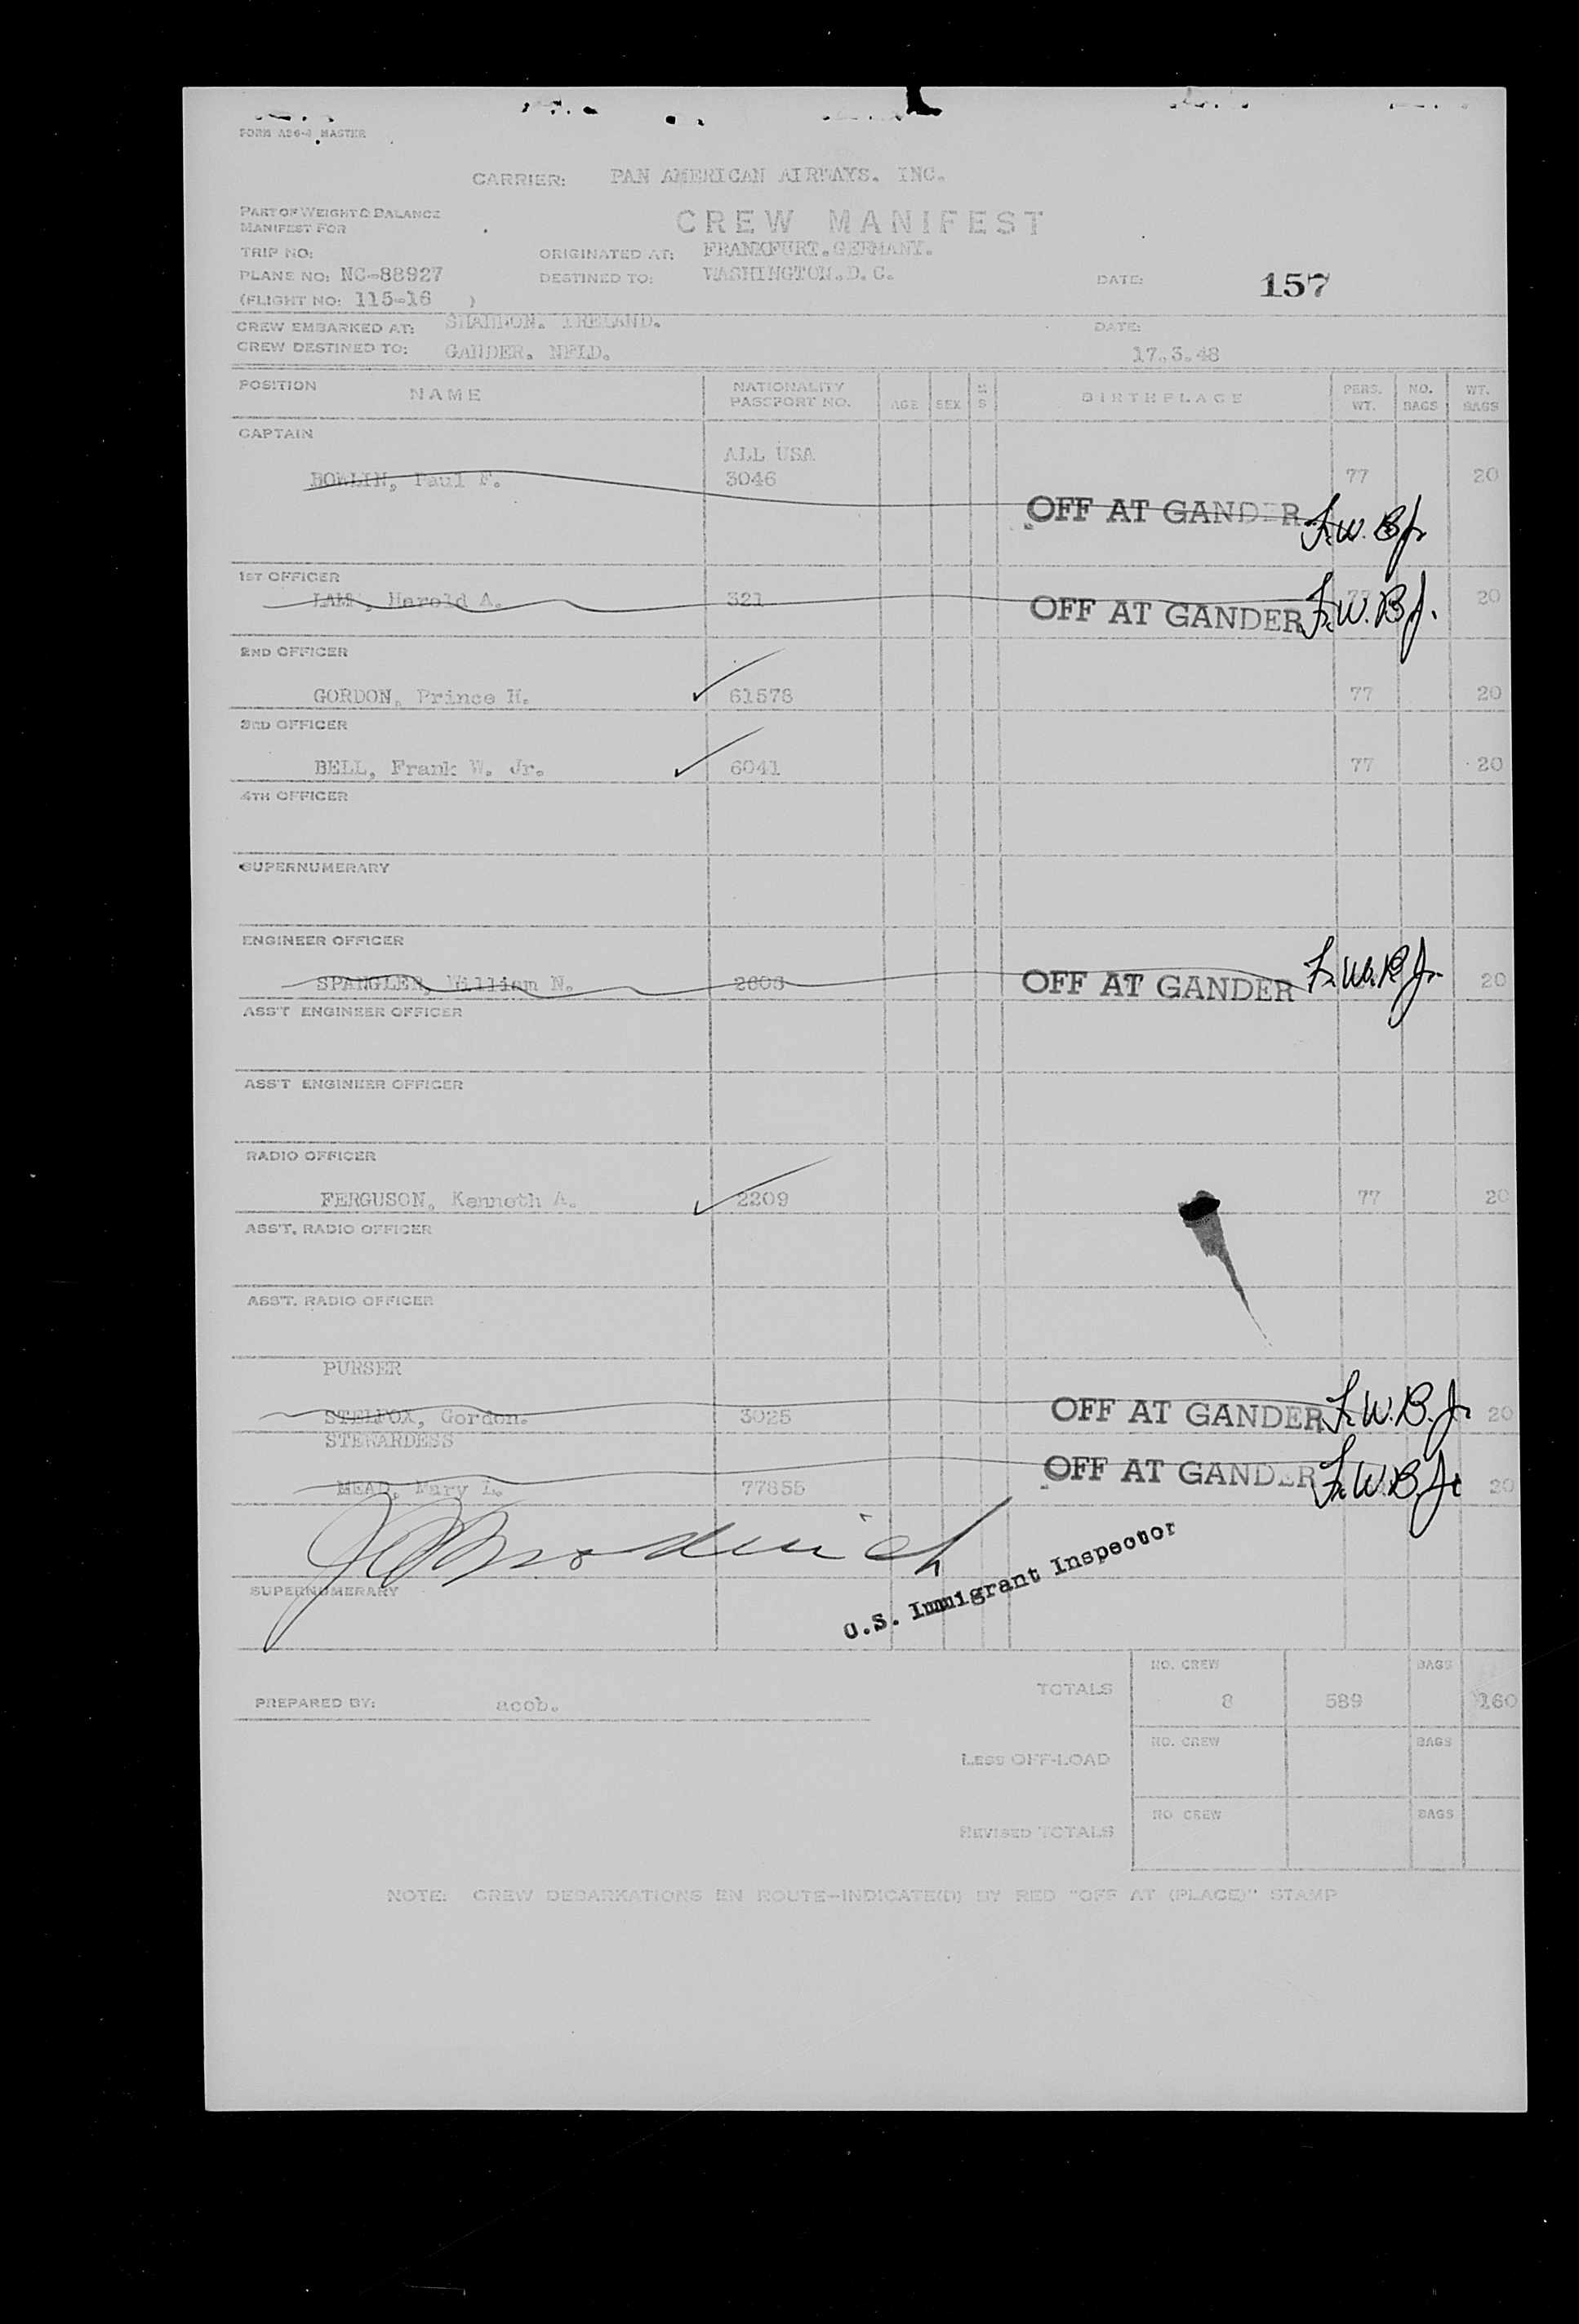 FORM A26-4 MASTER
CARRIER: PAN AMERICAN AIRWAYS. INC.
PART OF WEIGHT & BALANCE
MANIFEST FOR
CREW MANIFEST
TRIP NO: ORIGINATED AT: FRANKFURT.GERMANY.
PLANE NO: NC-88927 DESTINED TO: WASHINGTON.D.C. DATE: 157
(FLIGHT NO: 115-16 )
CREW EMBARKED AT: SHANNON. IRELAND. DATE:
CREW DESTINED TO: GANDER. NFLD. 17.3.48
POSITION NAME NATIONALITY PASSPORT NO. AGE SEX M S BIRTHPLACE PERS. WT. NO. BAGS WT. BAGS
CAPTAIN
ALL USA
BOWLIN, Paul F. 3046 77 20
OFF AT GANDER F.W.B Jr
1ST OFFICER
Harold A. 321 77 20
OFF AT GANDER F.W.B J.
2ND OFFICER
GORDON, Prince H. 61578 77 20
3RD OFFICER
BELL, Frank W. Jr. 6041 77 20
4TH OFFICER
SUPERNUMERARY
ENGINEER OFFICER
SPANGLER, William N. OFF AT GANDER F.W.B Jr. 20
ASS'T ENGINEER OFFICER
ASS'T ENGINEER OFFICER
RADIO OFFICER
FERGUSON, Kenneth A. 2209 77 20
ASS'T. RADIO OFFICER
ASS'T. RADIO OFFICER
PURSER
STELFOX, Gordon. 3025 OFF AT GANDER F.W.B.Jr 20
STEWARDESS
MEAD, Mary L. 77855 OFF AT GANDER F.W.B.Jr 20
U.S. Immigrant Inspector
SUPERNUMERARY
PREPARED BY: acob. TOTALS NO. CREW 8 539 BAGS 160
LESS OFF-LOAD NO. CREW BAGS
REVISED TOTALS NO CREW BAGS
NOTE: CREW DEBARKATIONS EN ROUTE-INDICATE(D) BY RED "OFF AT (PLACE)" STAMP